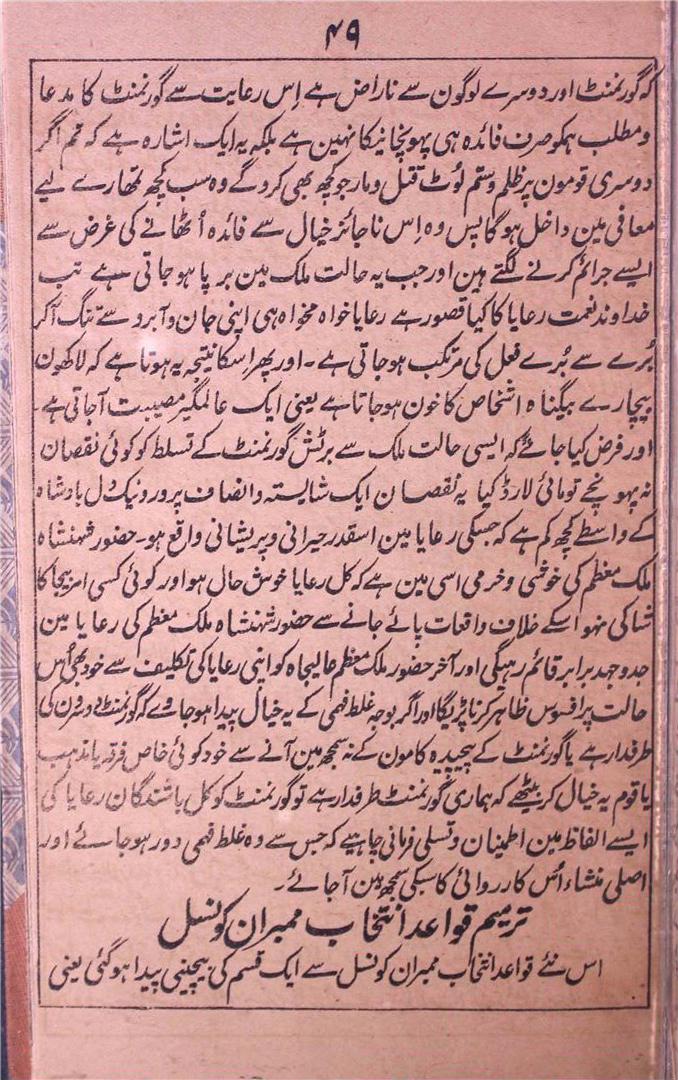 ۴۹
کہ گورنمنٹ اور دوسرے لوگون سے ناراض ہے اِس رعایت سے گورنمنٹ کا مدعا
ومطلب ہمکو صرف فائدہ ہی پہونچانیکا نہین ہے بلکہ یہ ایک اشارہ ہے کہ تم اگر
دوسری قومون پر ظلم وستم لوُٹ قتل ومار جو کچھ بھی کروگے وہ سب کچھ تمھارے لیے
معافی مین داخل ہوگا پس وہ اِس ناجائز خیال سے فائدہ اُٹھانے کی غرض سے
ایسے جرائم کرنے لگتے ہین اور جب یہ حالت ملک مین برپا ہوجاتی ہے تب
خداوند نعمت رعایا کا کیا قصور ہے رعایا خواہ مخواہ ہی اپنی جان وآبرو سے تنگ آکر
بُرے سے بُرے فعل کی مرتکب ہوجاتی ہے۔ اور پھر اسکا نتیجہ یہ ہوتا ہے کہ لاکھون
بیچارے بیگناہ اشخاص کا خون ہوجاتا ہے یعنی ایک عالمگیر مصیبت آجاتی ہے۔
اور فرض کیا جائے کہ ایسی حالت ملک سے برٹش گورنمنٹ کے تسلط کو کوئی نقصان
نہ پہونچے تو مائی لارڈ کیا یہ نقصان ایک شایستہ وانصاف پرور ونیک دل بادشاہ
کے واسطے کچھ کم ہے کہ جسکی رعایا مین اسقدر حیرانی وپریشانی واقع ہو۔ حضور شہنشاہ
ملک معظم کی خوشی وخرمی اسی مین ہے کہ کل رعایا خوش حال ہو اور کوئی کسی امر بیجا کا
شاکی نہو اسکے خلاف واقعات پائے جانے سے حضور شہنشاہ ملک معظم کی رعایا مین
جدوجہد برابر قائم رہیگی اور آخر حضور ملک معظم عالیجاہ کو اپنی رعایا کی تکلیف سے خود بھی اُس
حالت پر افسوس ظاہر کرنا پڑیگا اور اگر بوجہ غلط فہمی کے یہ خیال پیدا ہوجاوے کہ گورنمنٹ دوسرون کی
طرفدار ہے یا گورنمنٹ کے پیچیدہ کامون کے نہ سمجھ مین آنے سے خود کوئی خاص فرقہ یا مذہب
یا قوم یہ خیال کر بیٹھے کہ ہماری گورنمنٹ طرفدار ہے تو گورنمنٹ کو کل باشندگان رعایا کی
ایسے الفاظ مین اطمینان وتسلی فرمانی چاہیے کہ جس سے وہ غلط فہمی دور ہوجائے اور
اصلی منشاء اُس کارروائی کا سبکی سمجھ مین آجائے۔
ترمیم قواعد انتخاب ممبران کونسل
اس نئے قواعد انتخاب ممبران کونسل سے ایک قسم کی بیچینی پیدا ہوگئی یعنی